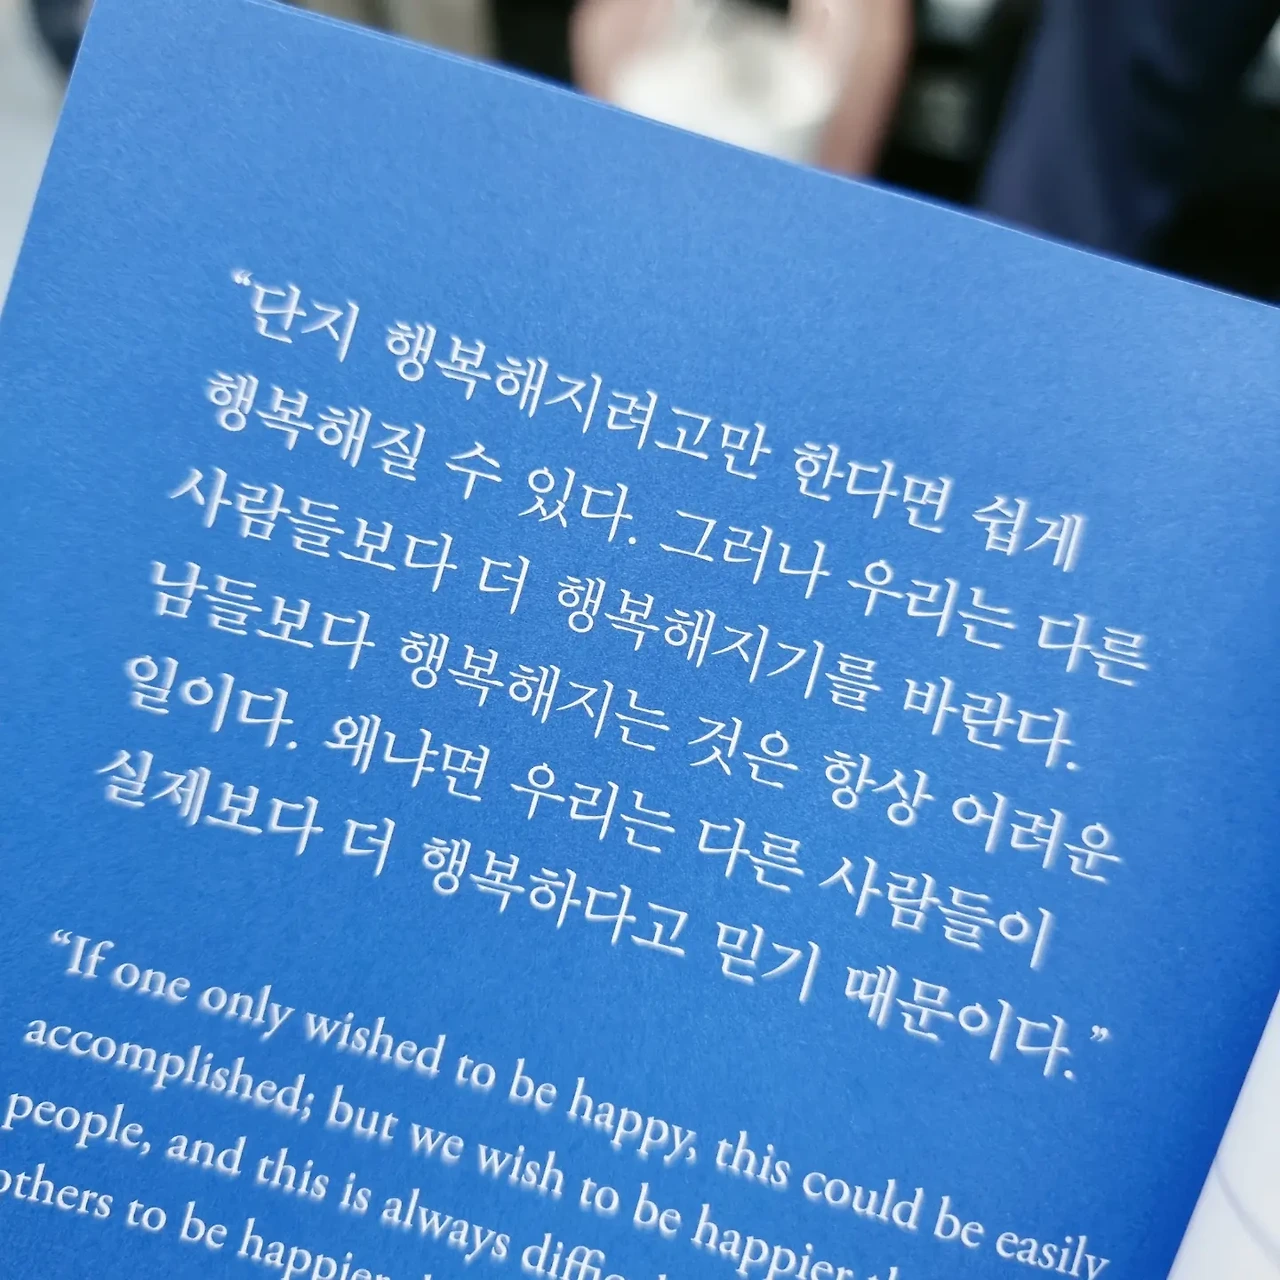 “단지 행복해지려고만 한다면 쉽게
행복해질 수 있다. 그러나 우리는 다른
사람들보다 더 행복해지기를 바란다.
남들보다 행복해지는 것은 항상 어려운
일이다. 왜냐면 우리는 다른 사람들이
실제보다 더 행복하다고 믿기 때문이다.”
“If one only wished to be happy, this could be easily
accomplished; but we wish to be happier
people, and this is always
others to be happier